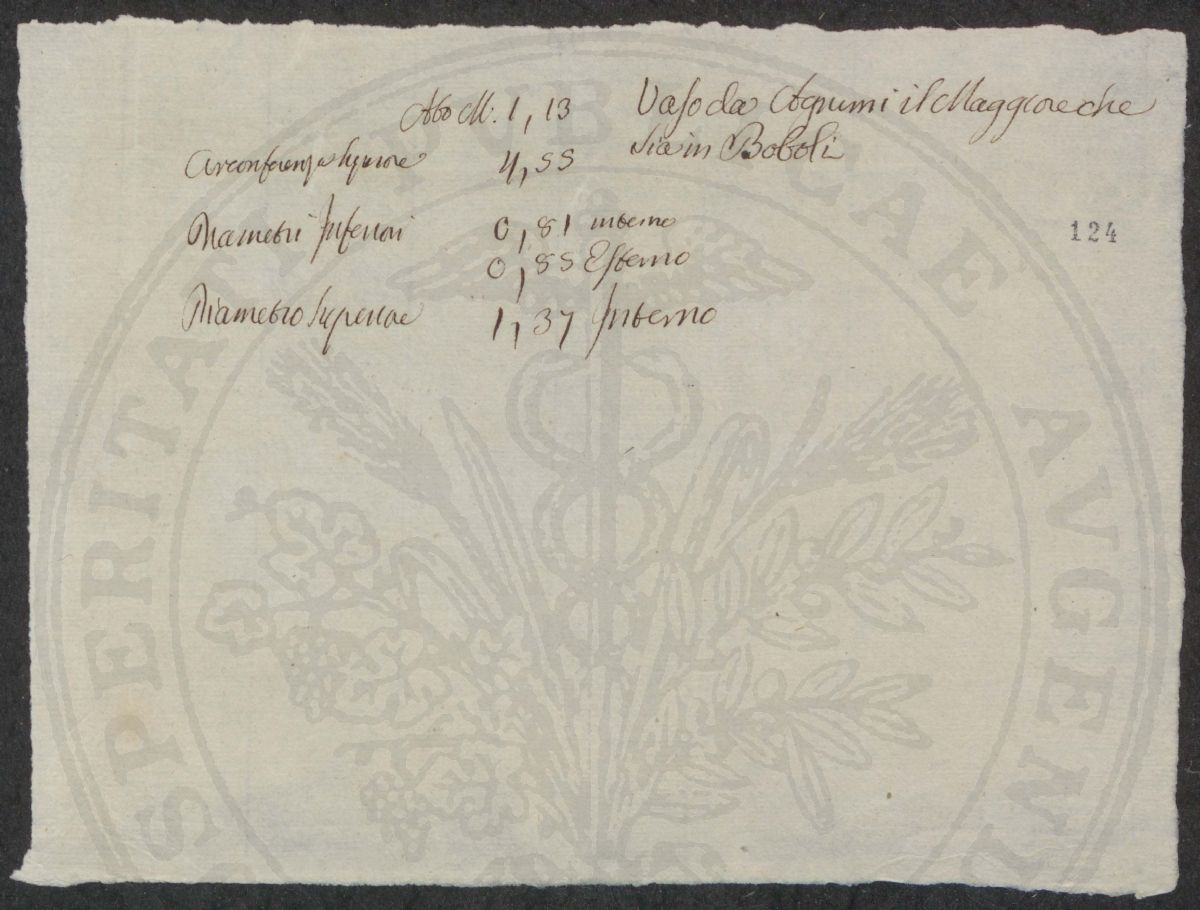 Alto M: 1,13 Vaso da Agrumi il Maggiore che
sia in Boboli
Circonferenza Superiore 4,55
Diametri Inferiori 0,81 interno
0,85 Esterno
Diametro Superiore 1,37 Interno
124
SPERITATI PUBLICAE AUGEN